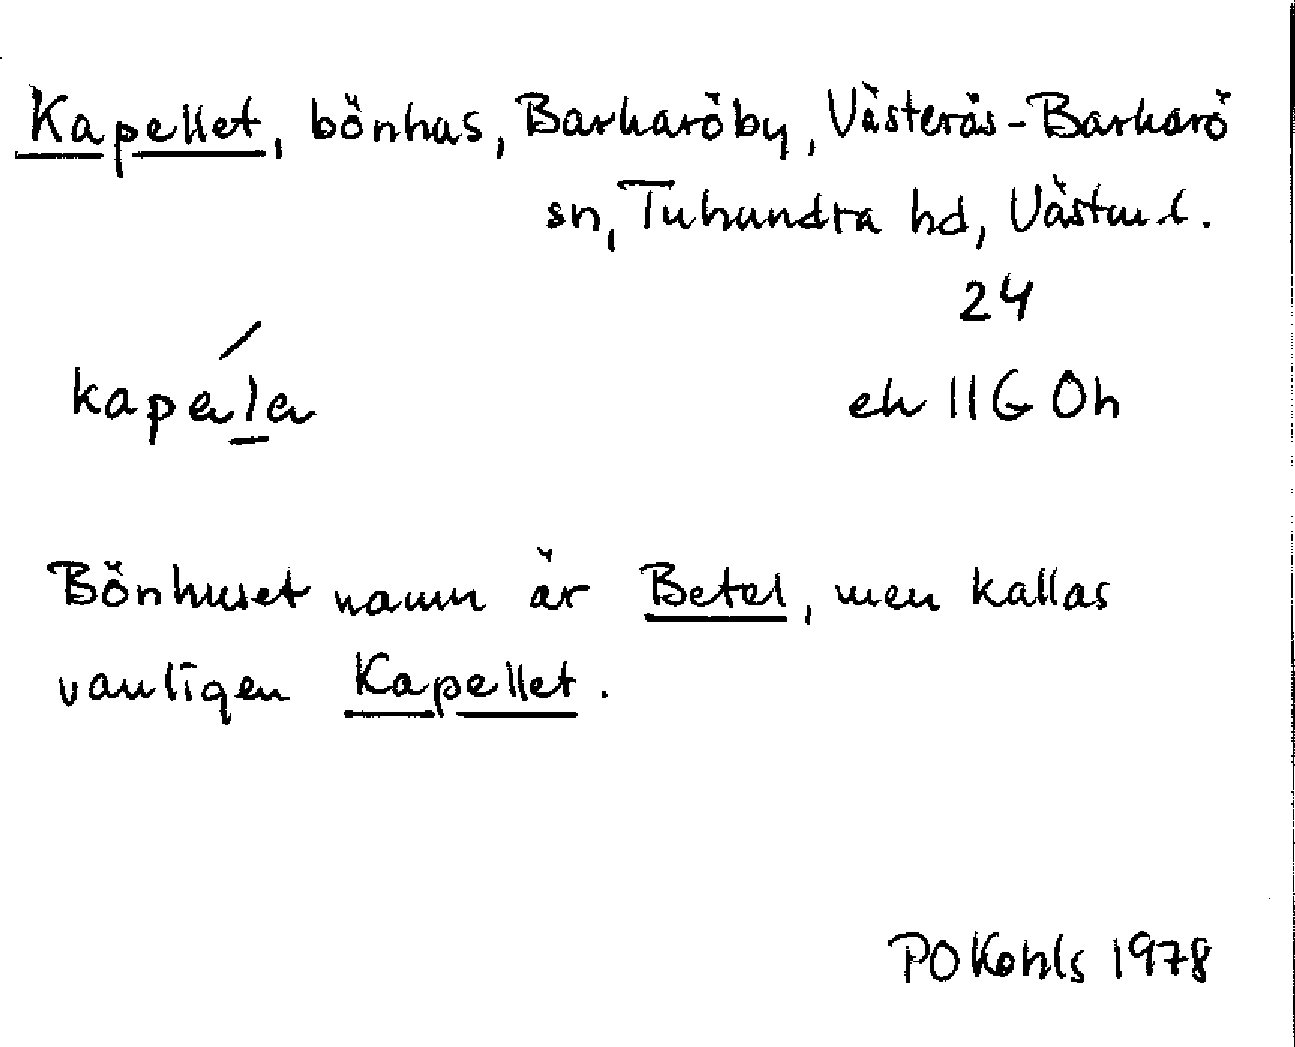 Kapellet, bönhus, Barkaröby, Västerås-Barkarö
sn, Tuhundra hd, Västml.
24
kapela
ek 11G 0h
Bönhuset namn är Betel, men kallas
vanligen Kapellet.
PO Kohls 1978